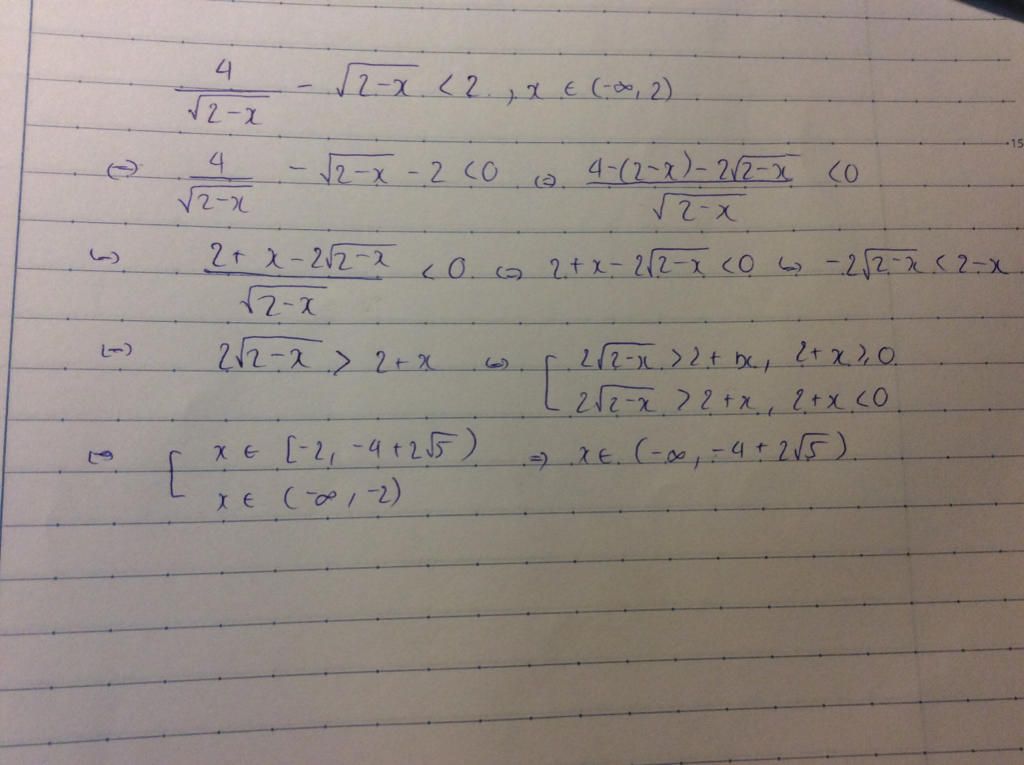 4/√(2-x) - √(2-x) < 2, x ∈ (-∞, 2)
⇔ 4/√(2-x) - √(2-x) - 2 < 0 ⇔ (4-(2-x)-2√(2-x))/√(2-x) < 0
⇔ (2+x-2√(2-x))/√(2-x) < 0 ⇔ 2+x-2√(2-x) < 0 ⇔ -2√(2-x) < 2-x
⇔ 2√(2-x) > 2+x ⇔ [ 2√(2-x) > 2+x, 2+x ≥ 0
2√(2-x) > 2+x, 2+x < 0
⇔ [ x ∈ [-2, -4+2√5) ⇒ x ∈ (-∞, -4+2√5)
x ∈ (-∞, -2)
15